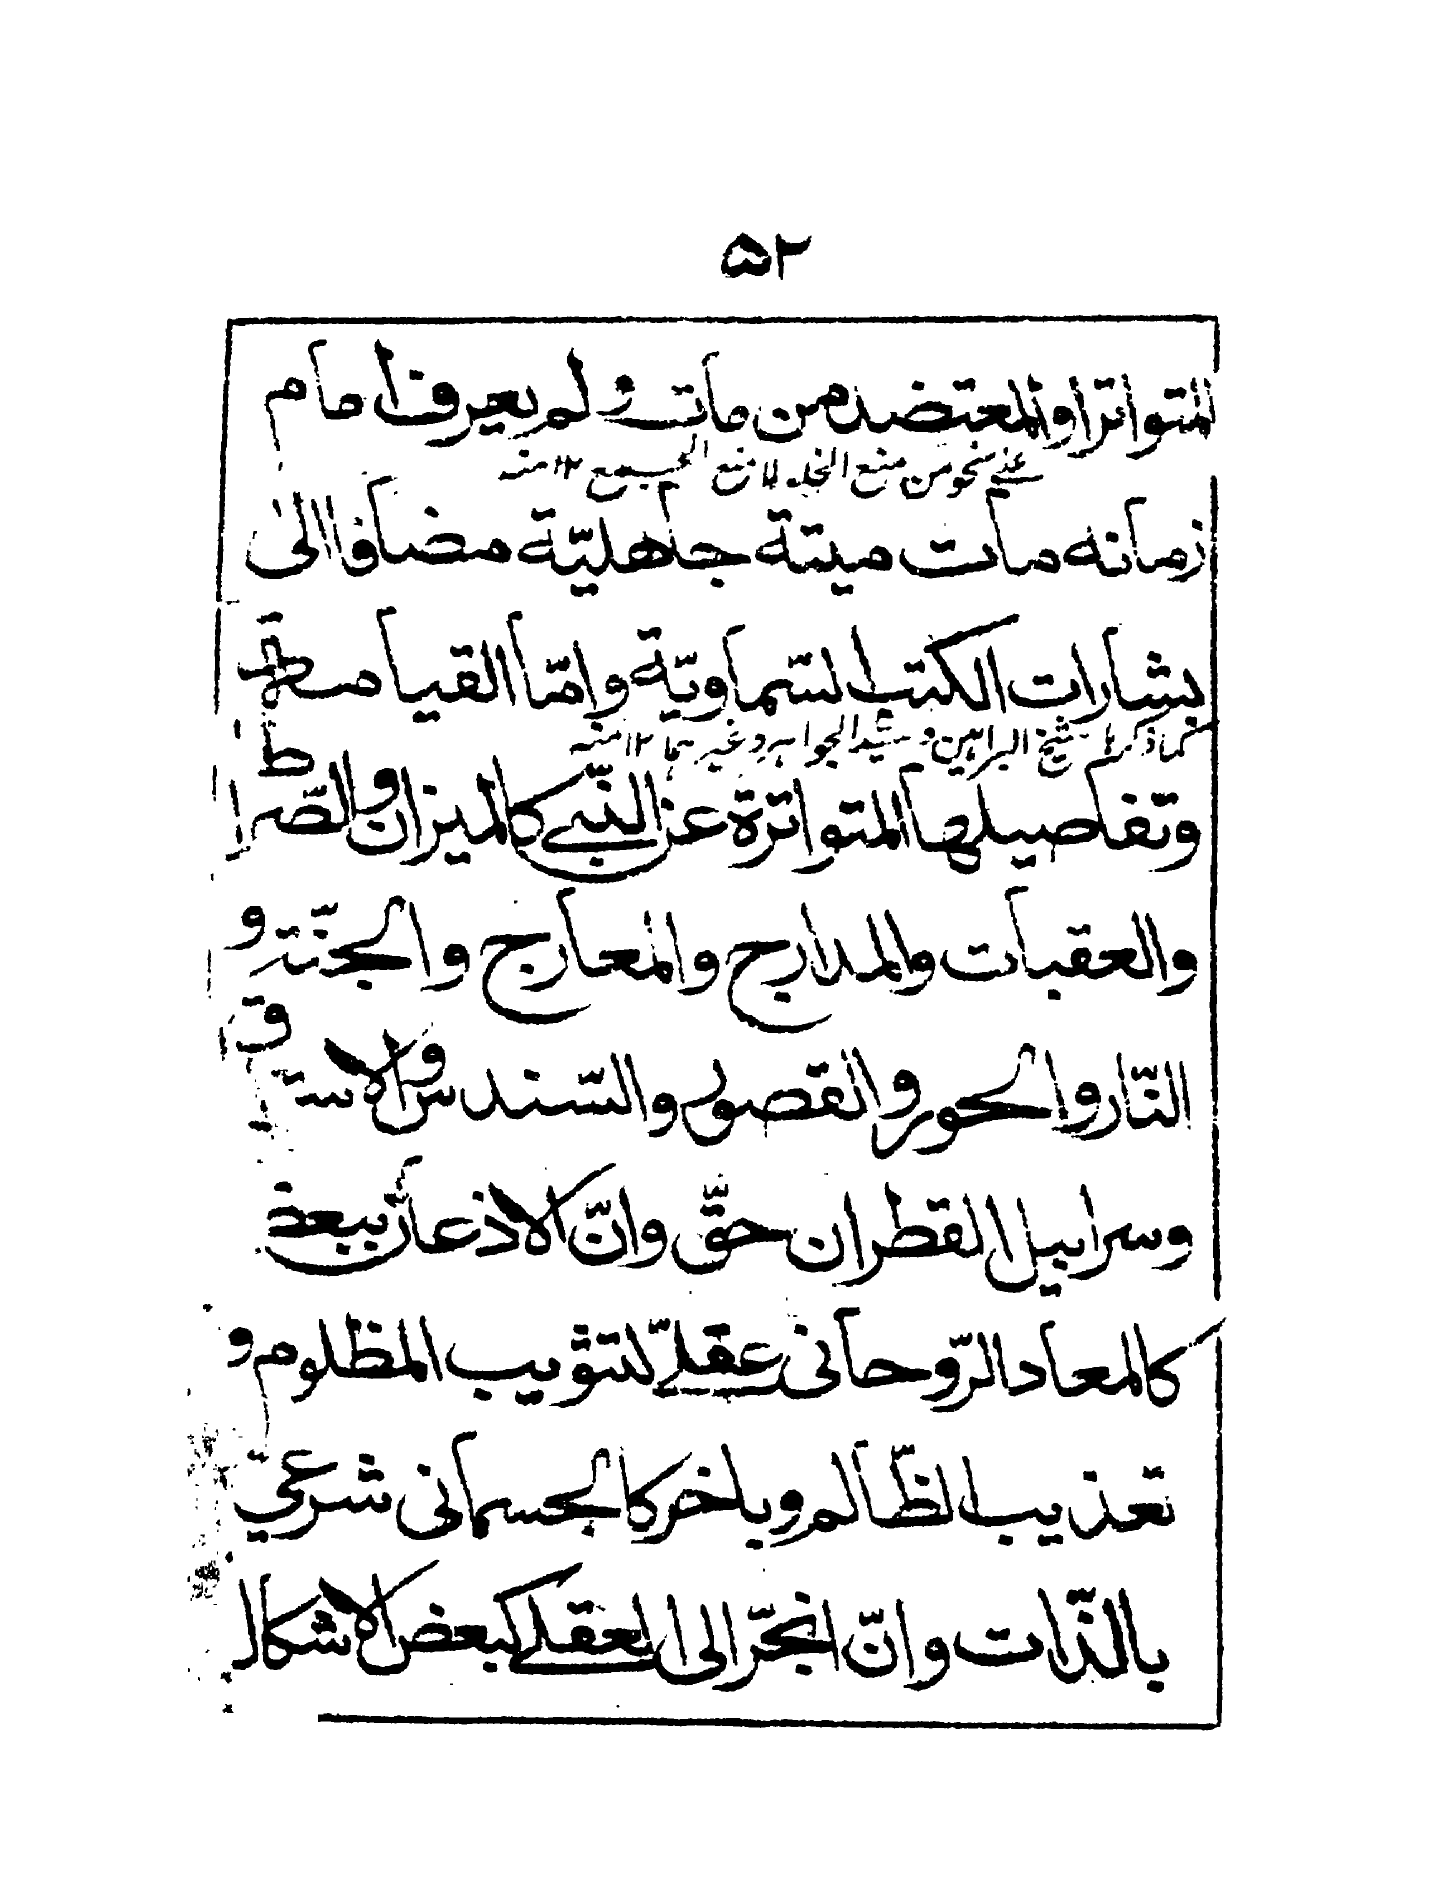 ۵۲
المتواتر او المعتضد من مات و لم يعرف امام
على نحو من منع الخلو لا منع الجمع ۱۲ منه
زمانه مات ميتة جاهليّة مضافا الى
بشارات الكتب السّماويّة وامّا القيامة
كما ذكره شيخ البراهين و سيّد الجواهر و غيرهما ۱۲ منه
وتفاصيلها المتواترة عن النّبي كالميزان والصّراط
والعقبات والمدارج والمعارج والجنّة و
النّار والحور والقصور والسّندس والاستبرق
وسرابيل القطران حتّى وانّ الاذعان ببعض
كالمعاد الرّوحانى عقلىّ لتثويب المظلوم و
تعذيب الظّالم وباخر كالجسمانى شرعىّ
بالذّات وانّ انجرّ الى العقلى كبعض الاشكال